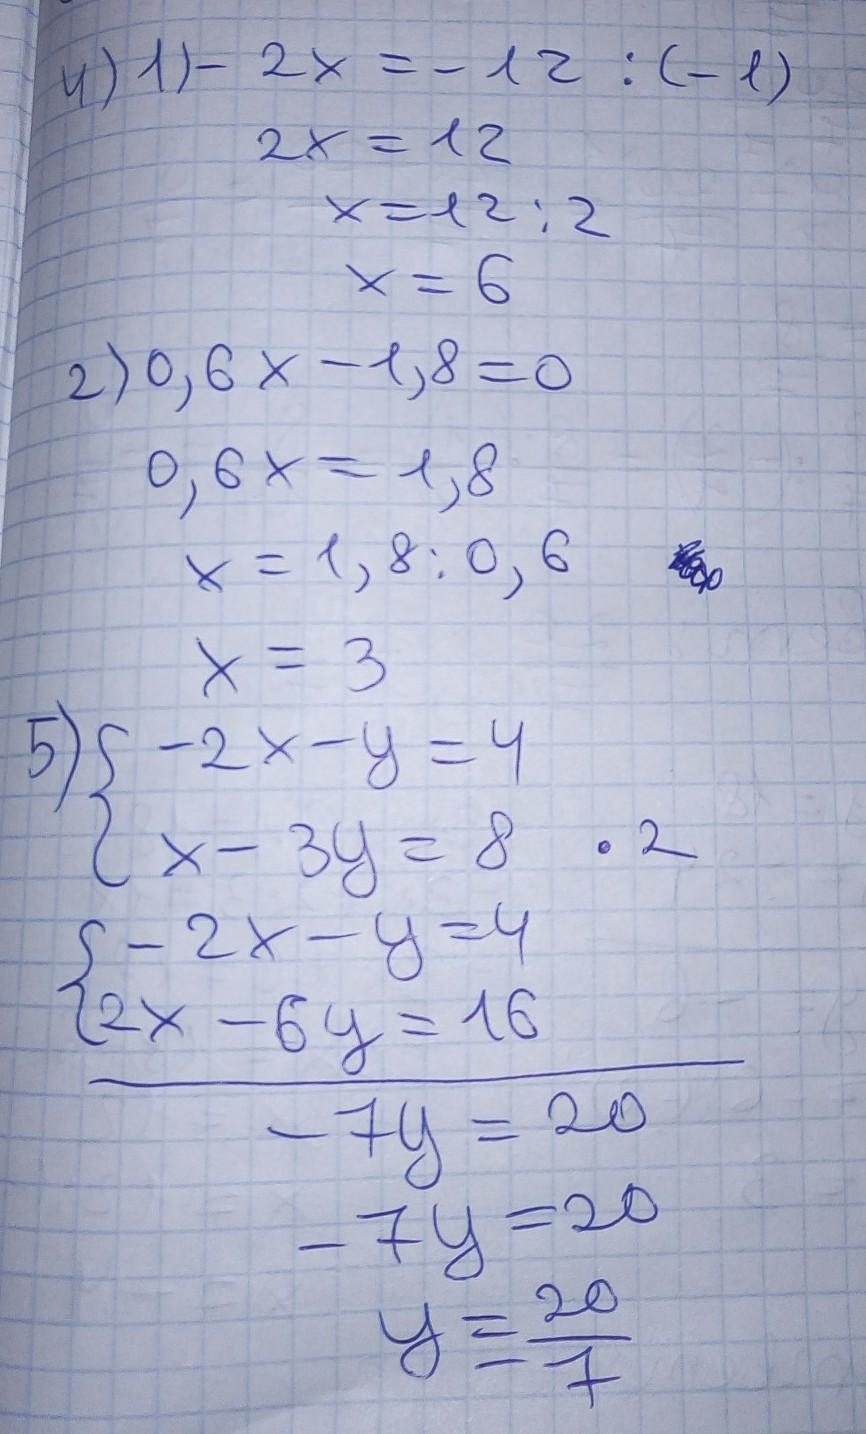 4) 1) - 2x = -12 : (-1)
2x = 12
x = 12 : 2
x = 6
2) 0,6x - 1,8 = 0
0,6x = 1,8
x = 1,8 : 0,6
x = 3
5) { -2x - y = 4
x - 3y = 8 · 2
{ -2x - y = 4
2x - 6y = 16
-7y = 20
-7y = 20
y = 20/-7